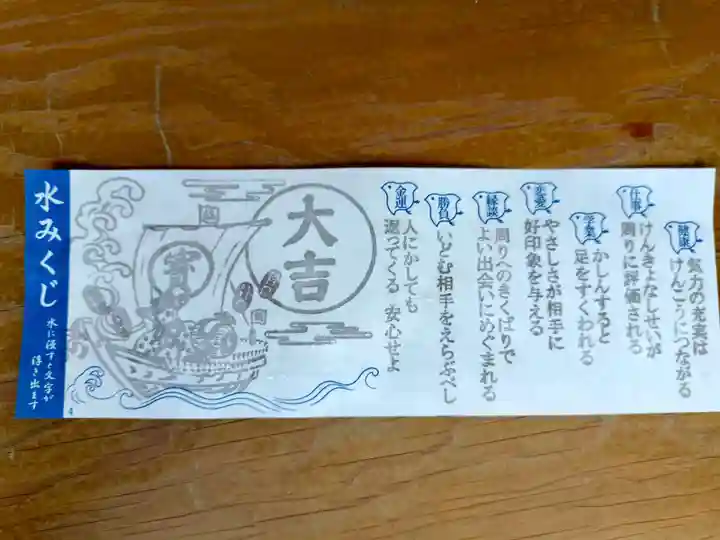 健康
気力の充実は
けんこうにつながる
仕事
けんきょなしせいが
周りに評価される
学業
かしんすると
足をすくわれる
恋愛
やさしさが相手に
好印象を与える
縁談
周りへのきくばりで
よい出会いにめぐまれる
勝負
いどむ相手をえらぶべし
金運
人にかしても
返ってくる 安心せよ
大吉
水みくじ
水に浸すと文字が
浮き出ます
4